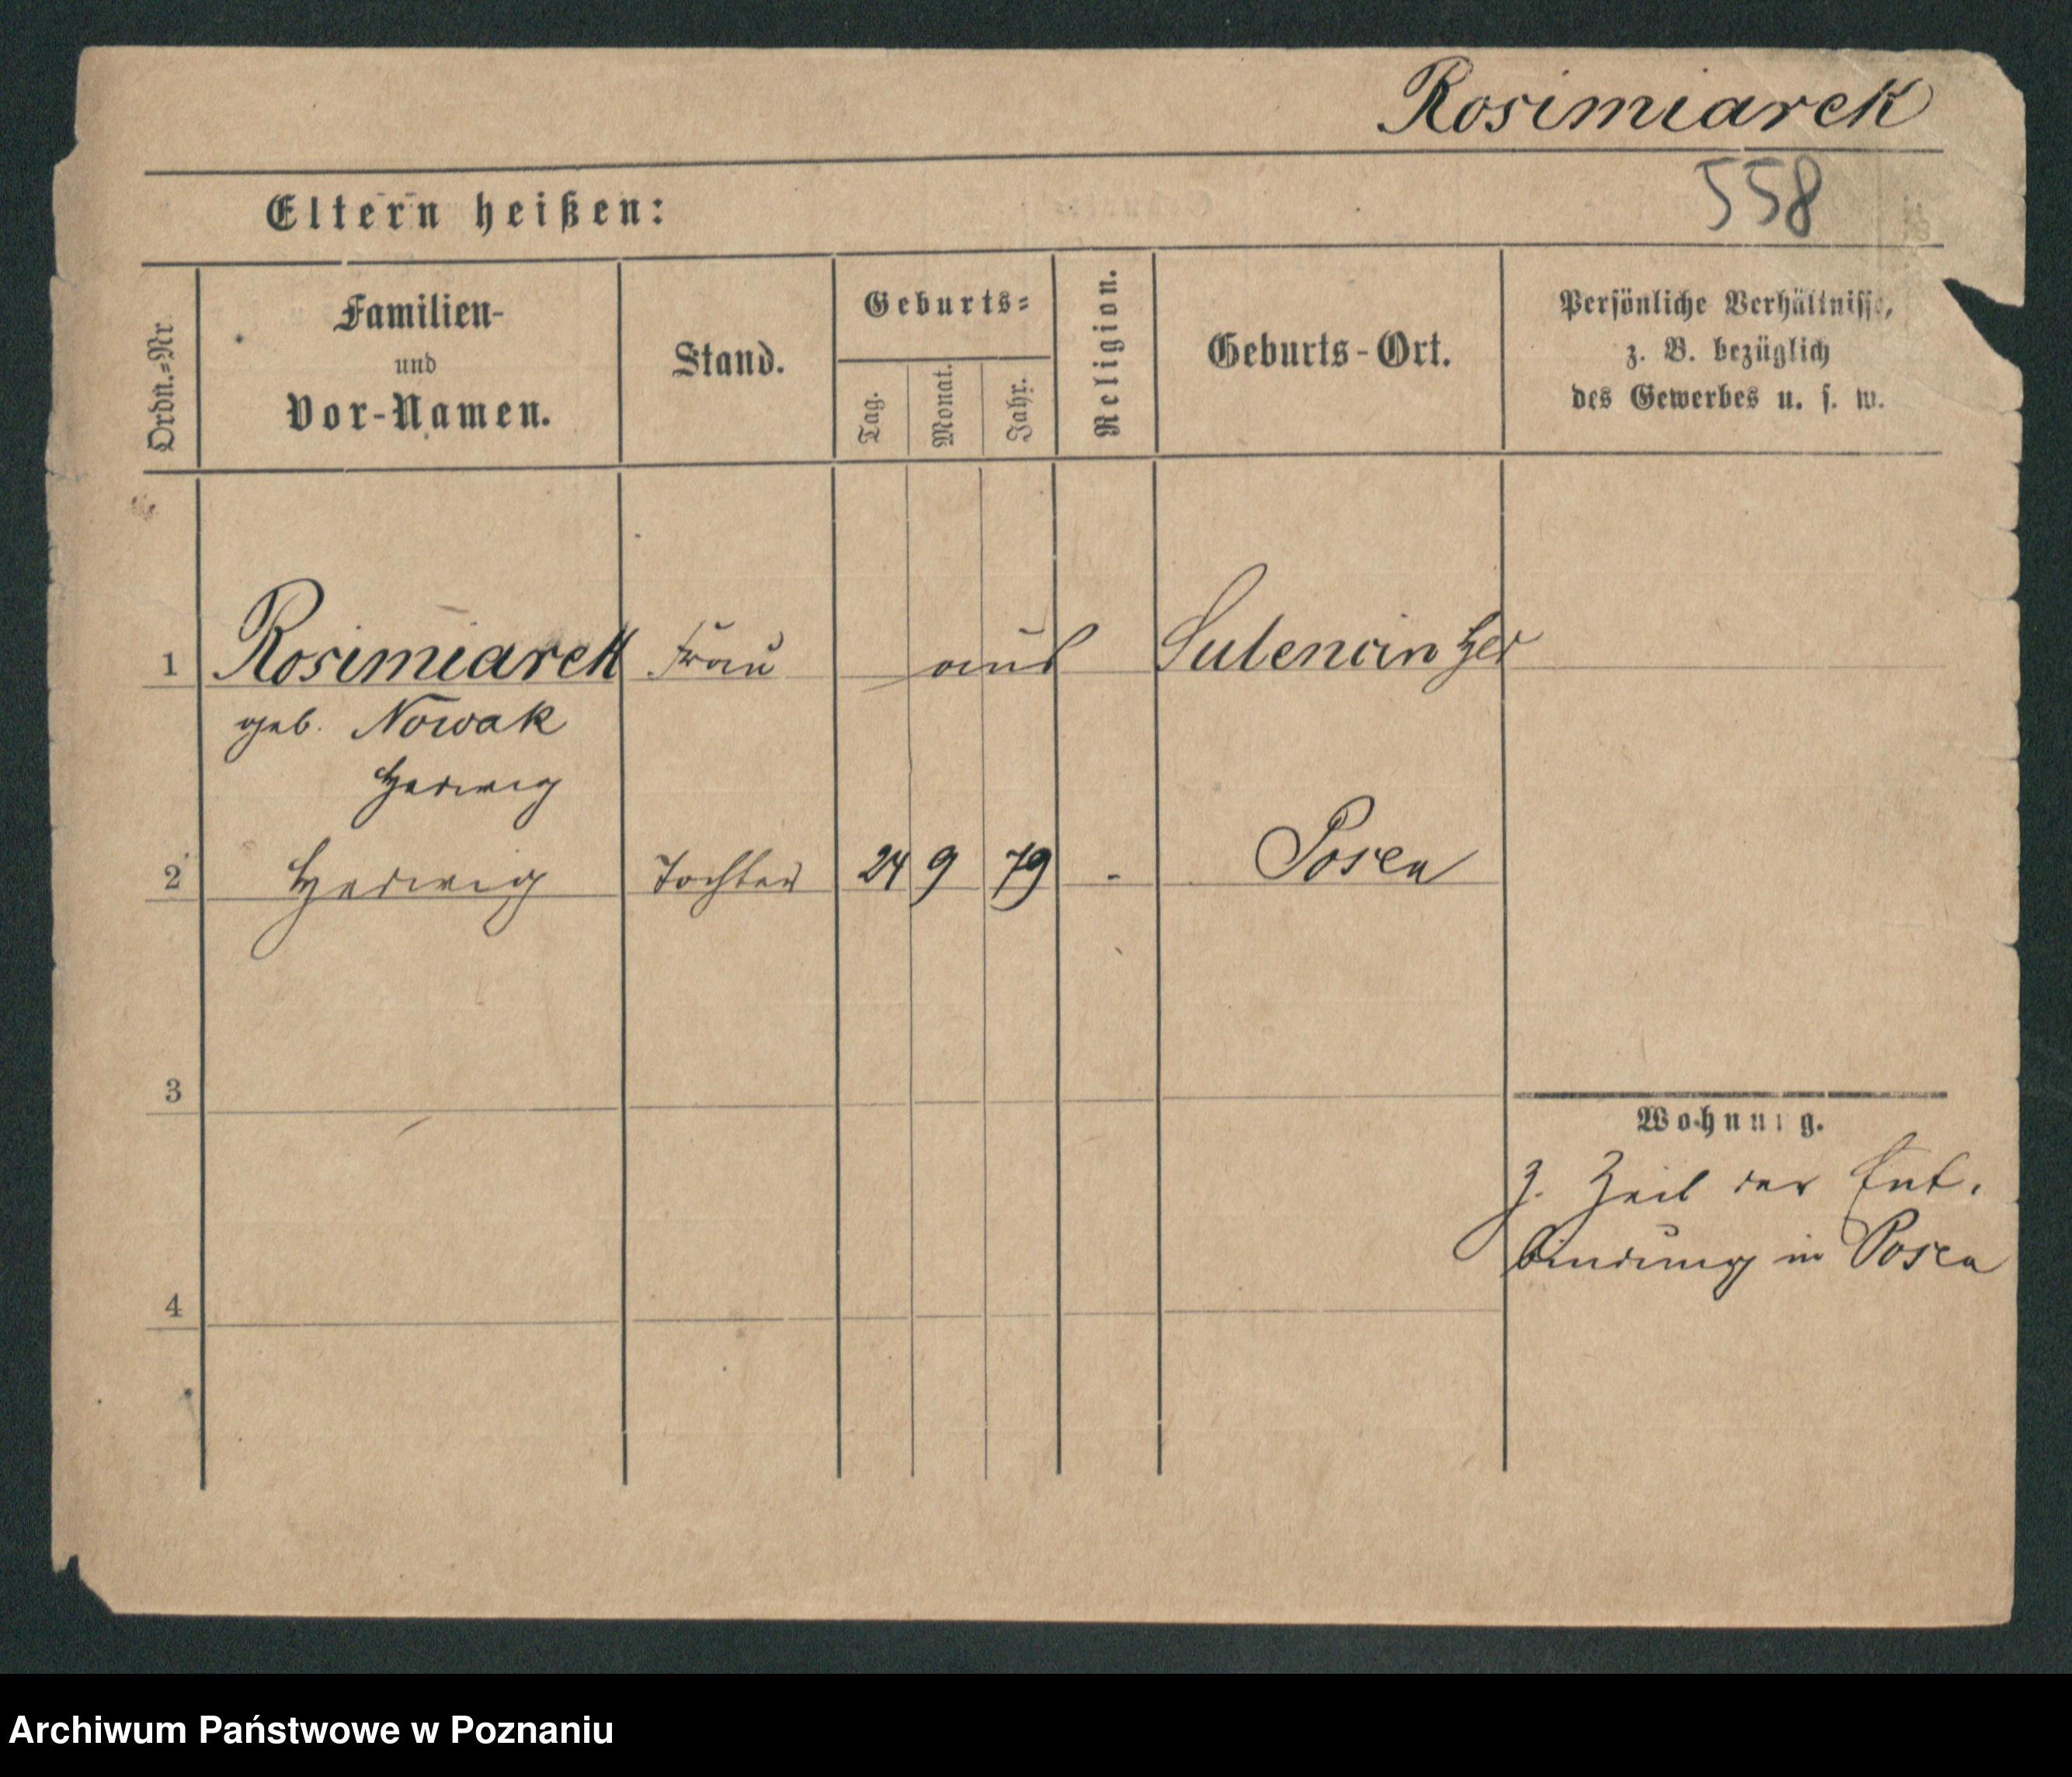 Rosimiarek
558
Eltern heißen:
Ordn.-Nr
Familien-
und
Vor-Namen.
Stand.
Geburts-
Tag.
Monat.
Jahr.
Religion.
Geburts-Ort.
Persönliche Verhältnisse,
z. B. bezüglich
des Gewerbes u. s. w.
1 Rosimiarek Frau aus Sulencin
geb. Nowak
Hedwig
2 Hedwig Tochter 24 9 79 - Posen
3
Wohnung.
z. Zeit der Ent-
bindung in Posen
4
Archiwum Państwowe w Poznaniu